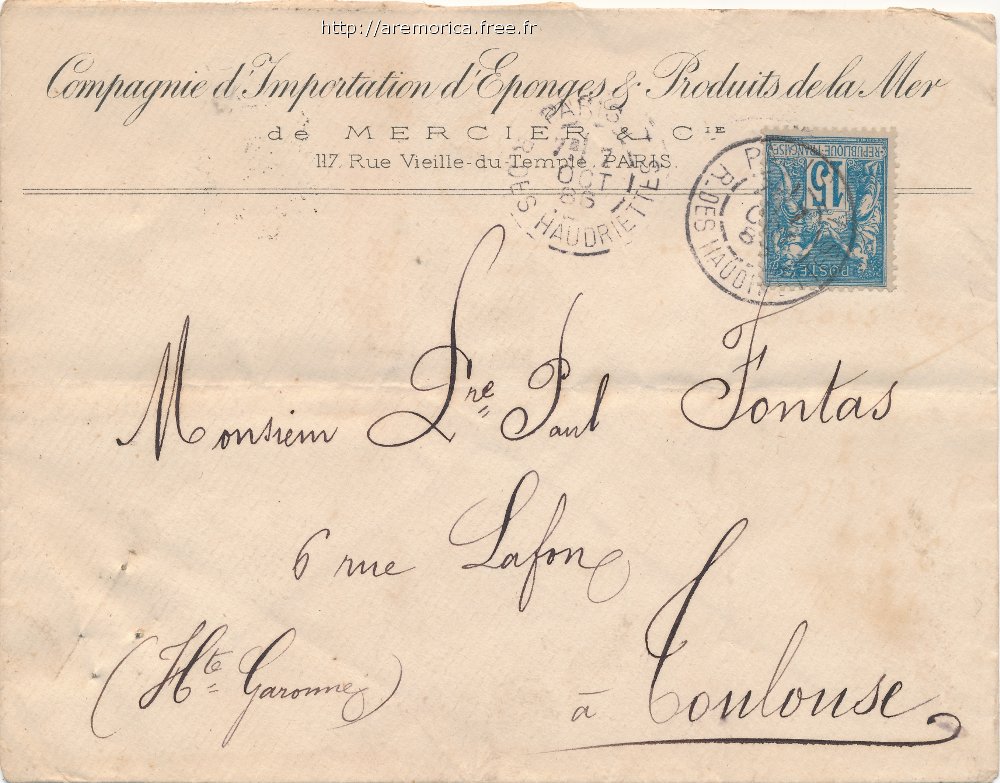 http://aremorica.free.fr
Compagnie d'Importation d'Eponges & Produits de la Mer
de MERCIER & Cie
117, Rue Vieille-du-Temple, PARIS.
PARIS
OCT
86
R. DES HAUDRIETTES
P
R. DES HAUDRI
REPUBLIQUE FRANÇAISE
15
POSTES
Monsieur Pre Paul Fontas
6 rue Lafon
(Hte Garonne)
à Toulouse